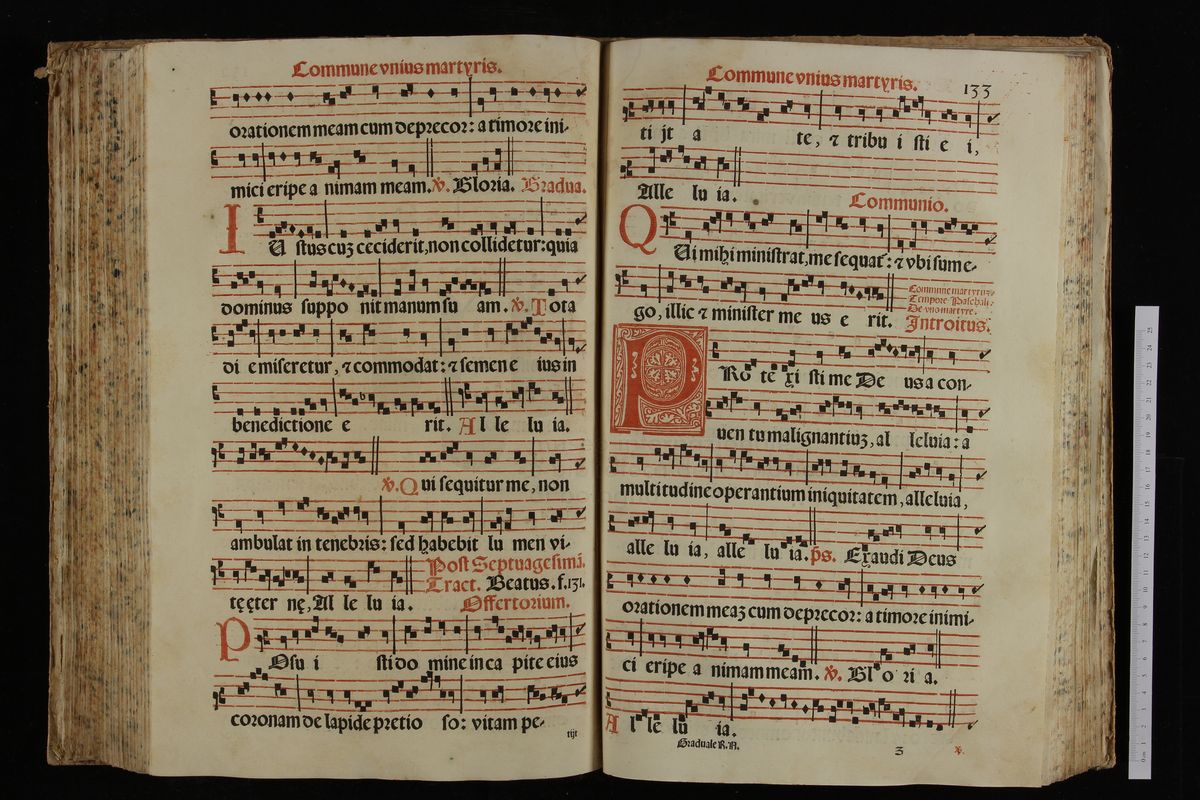 Commune vnius martyris.
orationem meam cum deprecor: a timore ini-
mici eripe a nimam meam. ℣. Gloria. Gradua.
IU stus cuʒ ceciderit, non collidetur: quia
dominus suppo nit manum su am. ℣. Tota
di e miseretur, ⁊ commodat: ⁊ semen e ius in
benedictione e rit. Al le lu ia.
℣. Qui sequitur me, non
ambulat in tenebris: sed habebit lu men vi-
Post Septuagesimā.
Tract. Beatus. f.131.
tę ęter nę, Al le lu ia. Offertorium.
POsu i sti do mine in ca pite eius
coronam de lapide pretio so: vitam pe-
tijt
Commune vnius martyris. 133
ti jt a te, ⁊ tribu i sti e i,
Alle lu ia. Communio.
QUi mihi ministrat, me sequat᷑: ⁊ vbi sum e-
go, illic ⁊ minister me us e rit.
Commune martyrum
Tempore Paschali.
De vno martyre.
Introitus.
PRo te xi sti me De us a con-
uen tu malignantiuʒ, al leluia: a
multitudine operantium iniquitatem, alleluia,
alle lu ia, alle lu ia. p̄s. Exaudi Deus
orationem meaʒ cum deprecor: a timore inimi-
ci eripe a nimam meam. ℣. Gl o ri a.
Al le lu ia.
Graduale R.R. 3 ℣.